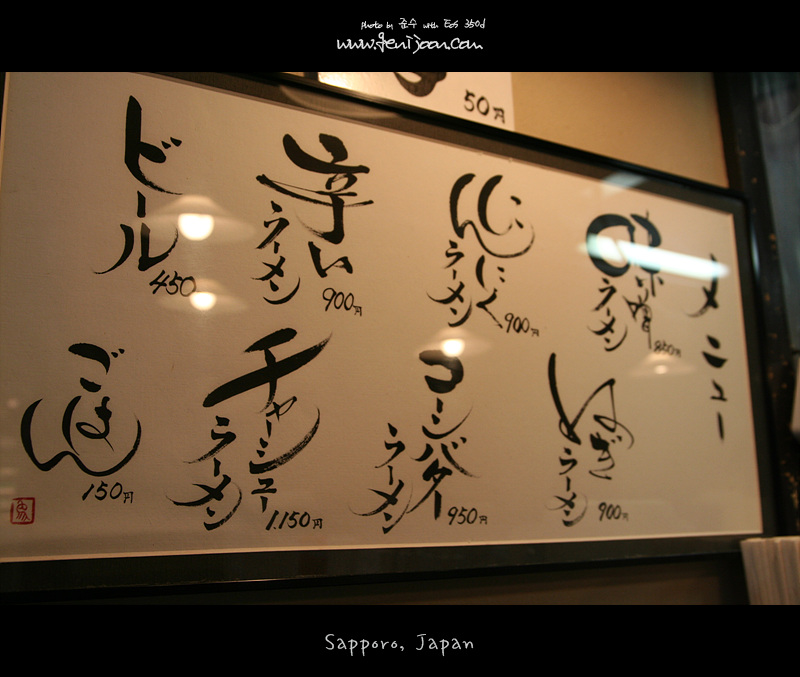 Photo by 준수 with EOS 350d
www.genijoon.com
50円
メニュー
味噌ラーメン
850円
にんにくラーメン
900円
辛いラーメン
900円
ビール
450
ねぎラーメン
900円
コーンバターラーメン
950円
チャーシューラーメン
1.150円
ごはん
150円
Sapporo, Japan